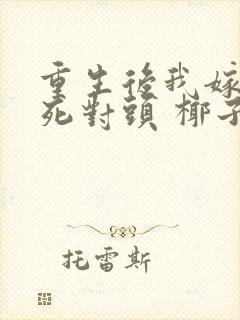 重生後我嫁
死對頭 椰子
托雷斯